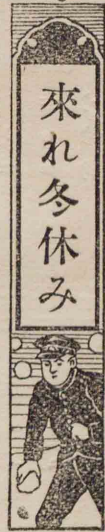 來れ冬休み